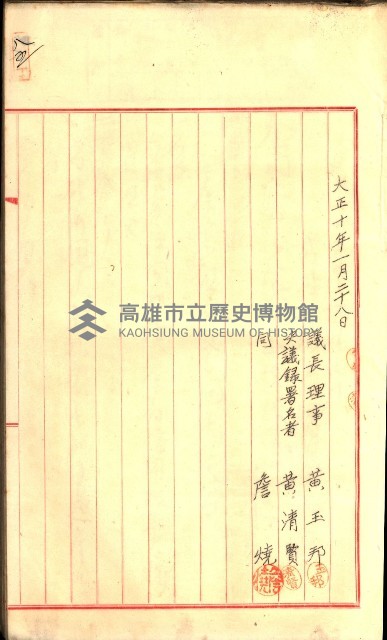 大正十年一月二十八日
議長理事 黃玉邦
決議錄署名者 黃清賢
同 詹燒
高雄市立歷史博物館
KAOHSIUNG MUSEUM OF HISTORY